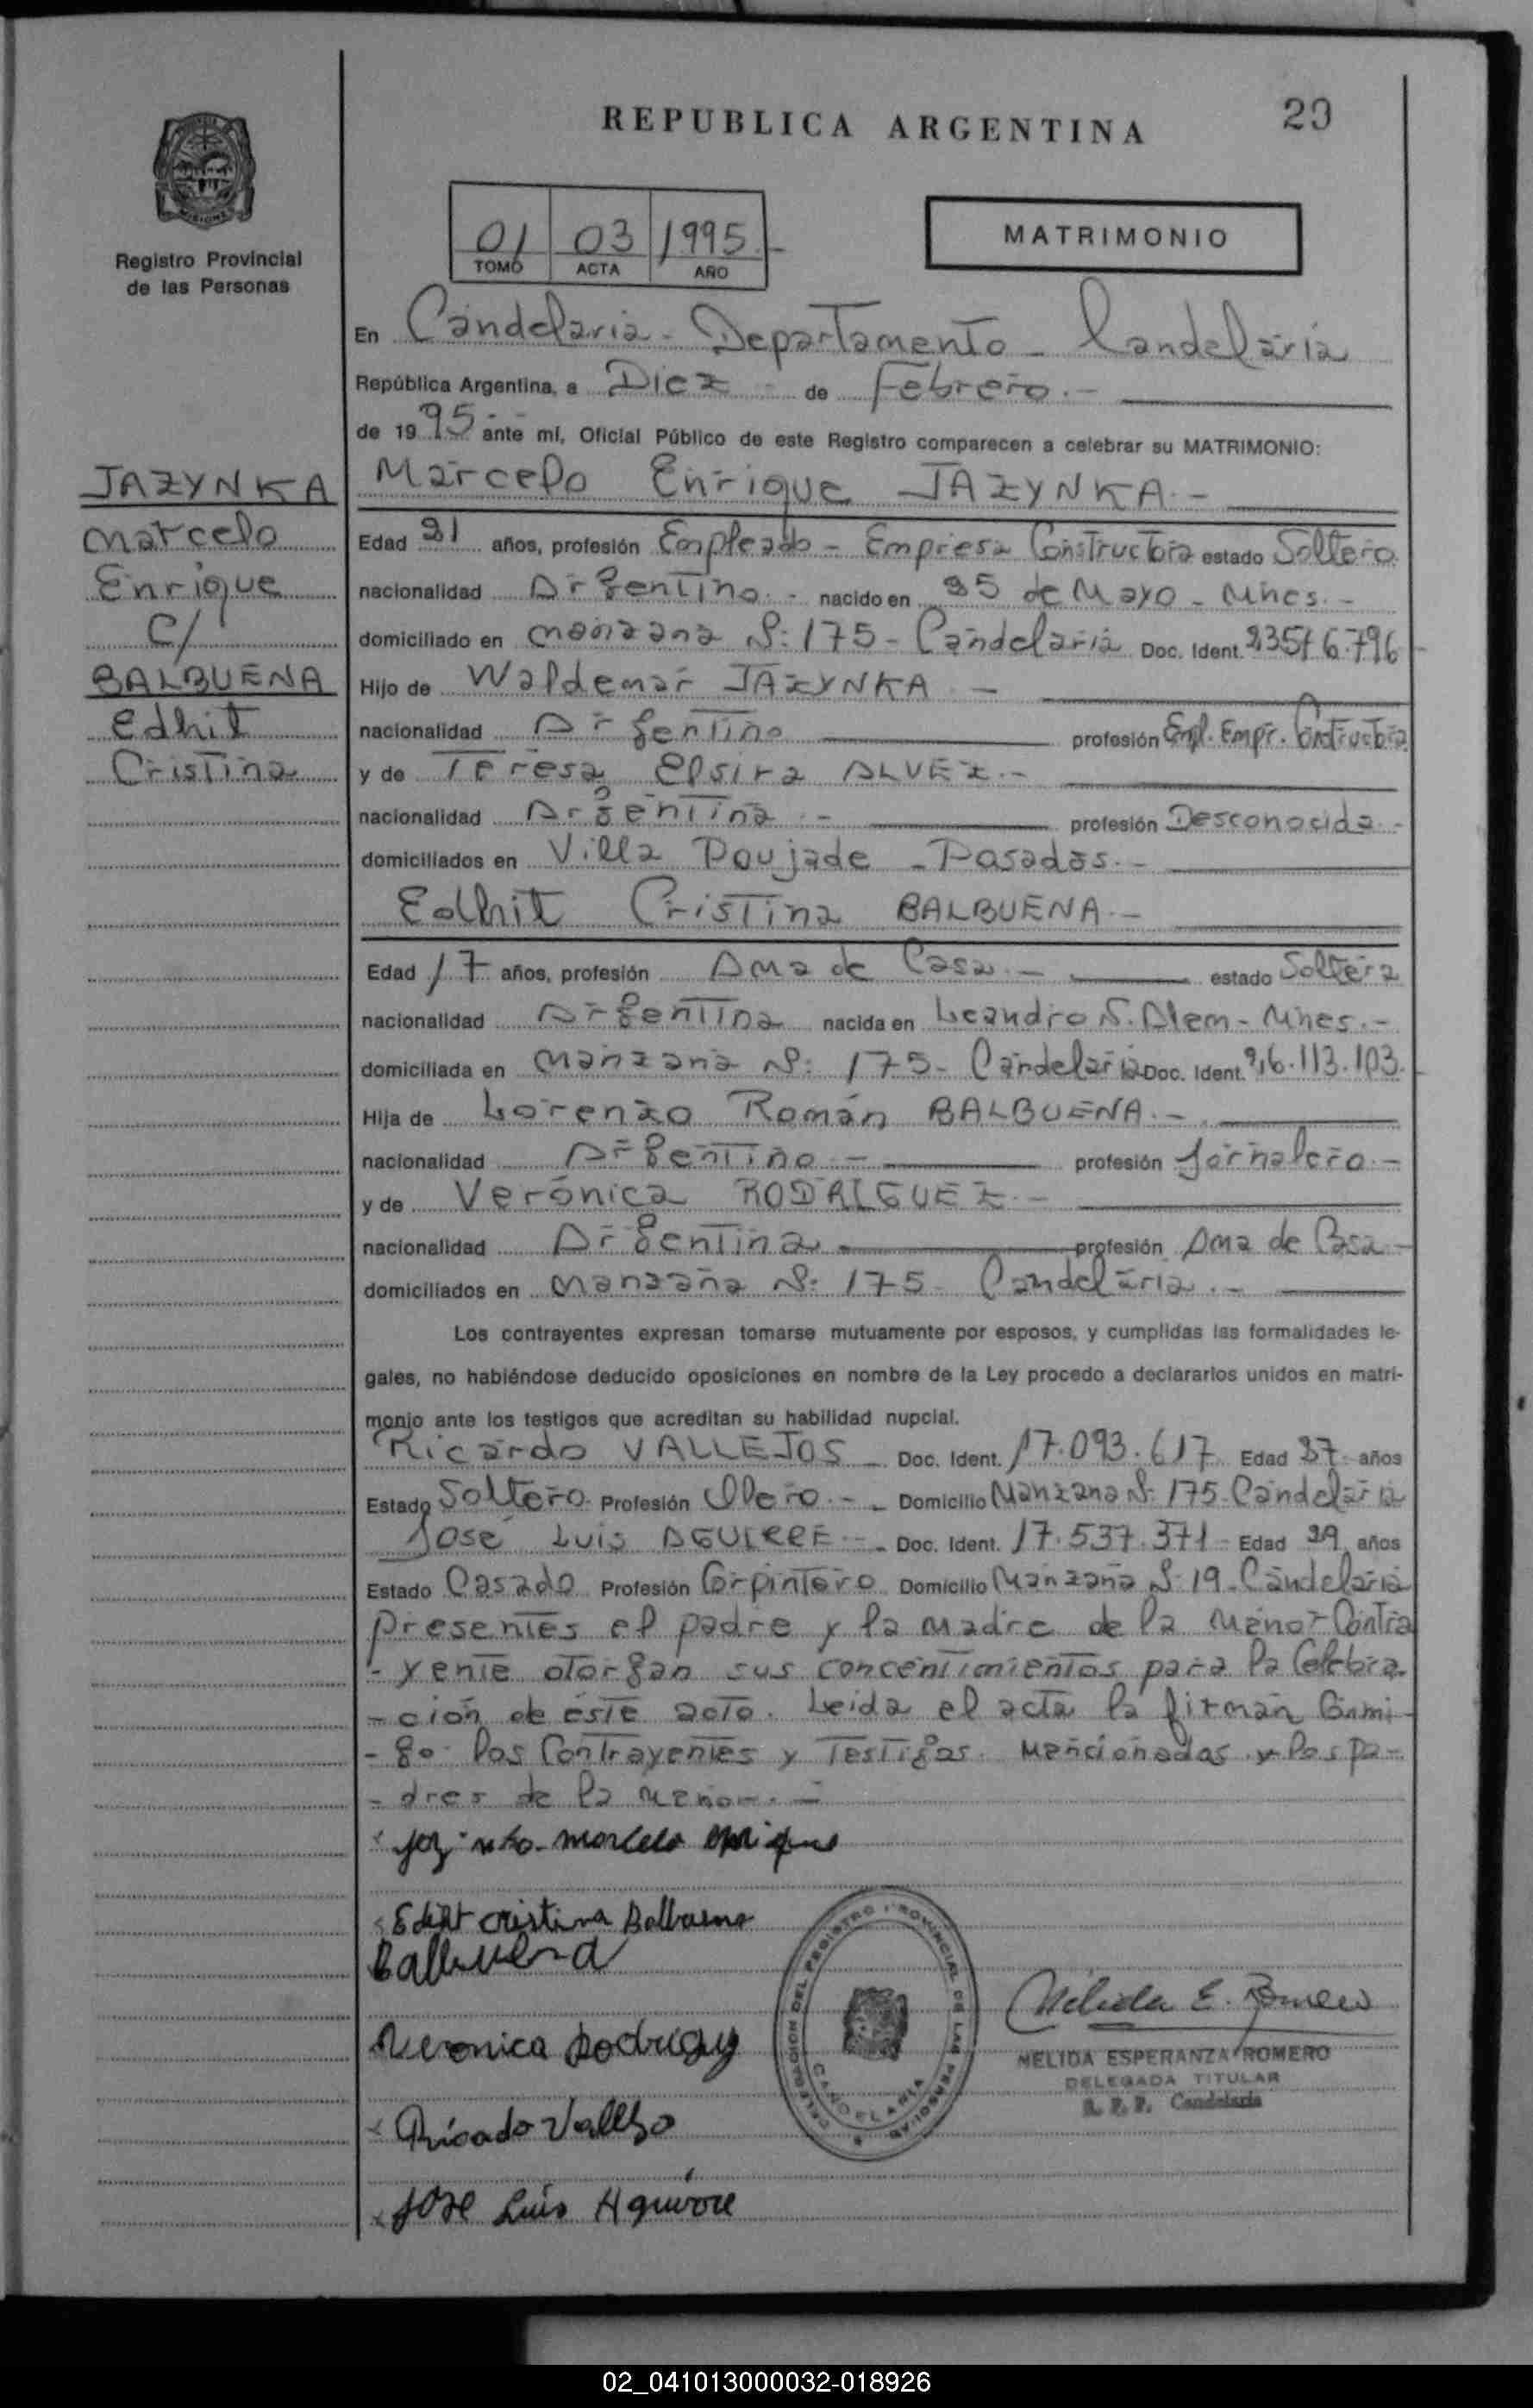 REPUBLICA ARGENTINA
29
Registro Provincial
de las Personas
01 03 1995.-
TOMO ACTA AÑO
MATRIMONIO
En Candelaria - Departamento - Candelaria
República Argentina, a Diez - de Febrero.-
de 1995.- ante mí, Oficial Público de este Registro comparecen a celebrar su MATRIMONIO:
Marcelo Enrique JAZYNKA.-
JAZYNKA
Marcelo
Enrique
C/
BALBUENA
Edhit
Cristina
Edad 21 años, profesión Empleado - Empresa Constructora estado Soltero
nacionalidad Argentino.- nacido en 25 de Mayo - Mnes.-
domiciliado en Manzana Nº: 175 - Candelaria Doc. Ident.
Hijo de Waldemar JAZYNKA.-
nacionalidad Argentino profesión Empl. Empr. Constructora
y de Teresa Elsira ALVEZ.-
nacionalidad Argentina.- profesión Desconocida.-
domiciliados en Villa Poujade - Posadas.-
Edhit Cristina BALBUENA.-
Edad 17 años, profesión Ama de Casa.- estado Soltera
nacionalidad Argentina nacida en Leandro N. Alem - Mnes.-
domiciliada en Manzana Nº: 175 - Candelaria Doc. Ident. 26.113.103.
Hija de Lorenzo Román BALBUENA.-
nacionalidad Argentino - profesión Jornalero.-
y de Verónica RODRIGUEZ.-
nacionalidad Argentina profesión Ama de Casa -
domiciliados en Manzana Nº: 175 - Candelaria.-
Los contrayentes expresan tomarse mutuamente por esposos, y cumplidas las formalidades le-
gales, no habiéndose deducido oposiciones en nombre de la Ley procedo a declararlos unidos en matri-
monio ante los testigos que acreditan su habilidad nupcial.
Ricardo VALLEJOS - Doc. Ident. 17.093.617 Edad años
Estado Soltero. Profesión Olero.- Domicilio Manzana Nº: 175 - Candelaria
José Luis AGUIRRE - Doc. Ident. 17.537.371 - Edad 29 años
Estado Casado Profesión Carpintero Domicilio Manzana Nº 19 - Candelaria
presentes el padre y la madre de la menor Contra
- yente otorgan sus concentimientos para la Celebra-
- ción de éste acto. Leida el acta la firman Conmi-
- go los Contrayentes y Testigos mencionados y los pa-
- dres de la menor.-
Jazinko - Marcelo Enrique
Edhit cristina Balbuena
Balbuena
Veronica Rodriguez
Ricardo Vallejo
Jose Luis Aguirre
DELEGACION DEL REGISTRO PROVINCIAL DE LAS PERSONAS
CANDELARIA
Nélida E. Romero
NELIDA ESPERANZA ROMERO
DELEGADA TITULAR
R. P. P. Candelaria
02_041013000032-018926